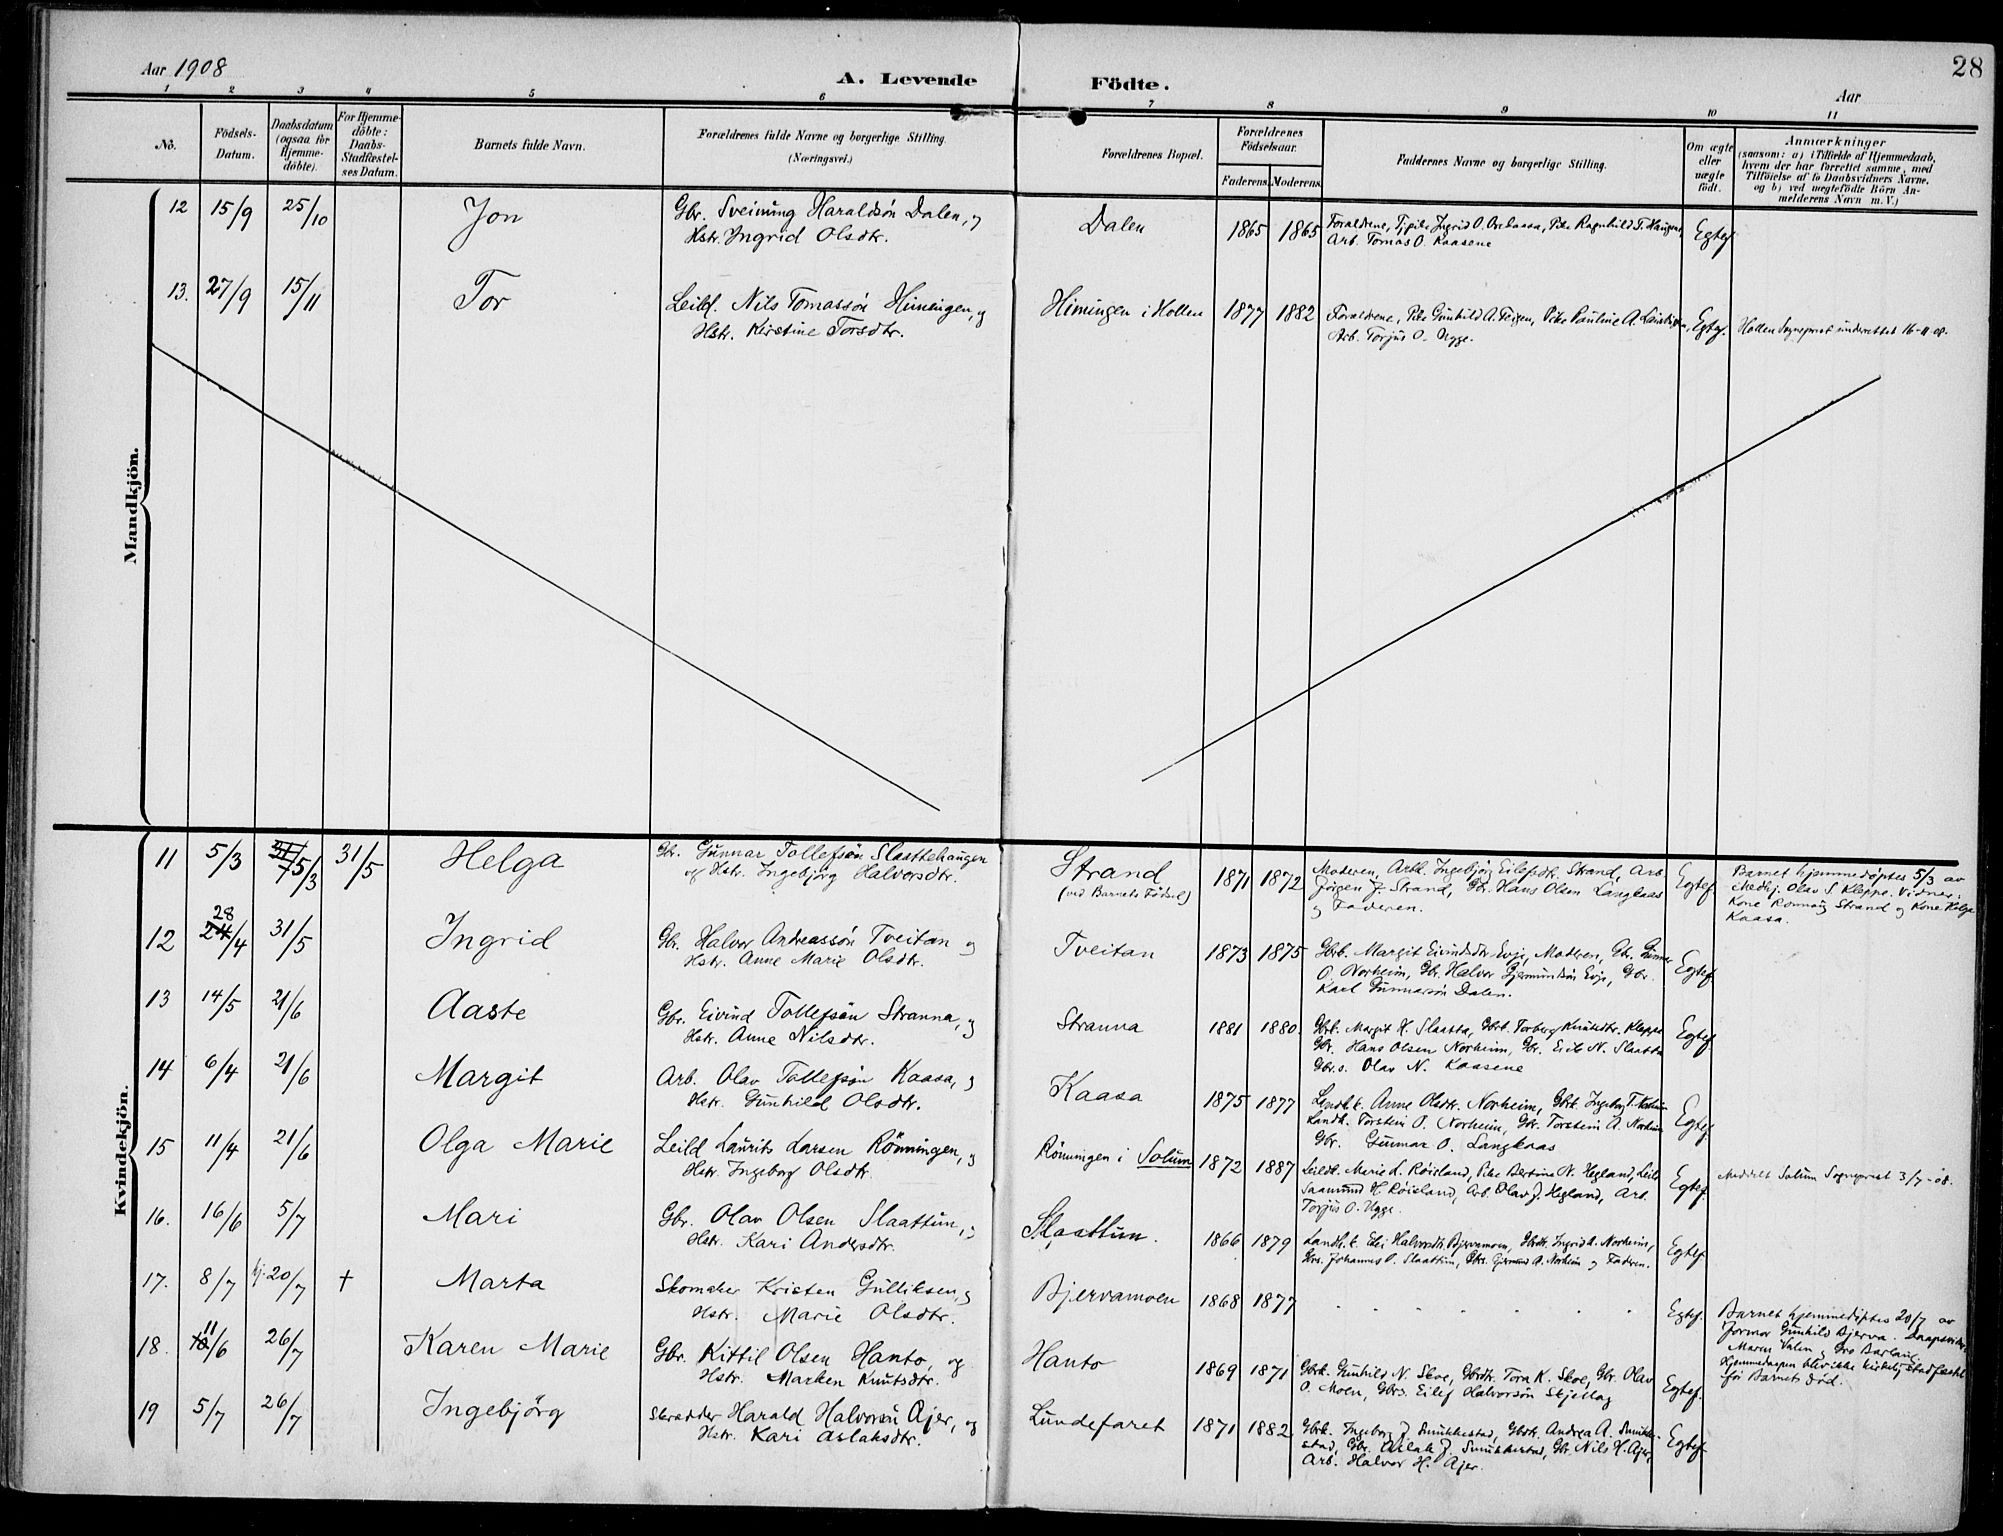 Aar 1908
A. Levende Födte.
28
Aar
1 2 3 4 5 6 7 8 9 10 11
No.
Födsels-Datum.
Daabsdatum (ogsaa for Hjemme-döbte).
For Hjemme-döbte: Daabs-Stadfæstel-ses Datum.
Barnets fulde Navn.
Forældrenes fulde Navne og borgerlige Stilling. (Næringsvei.)
Forældrenes Bopæl.
Forældrenes Födselsaar.
Faderens. Moderens.
Faddernes Navne og borgerlige Stilling.
Om ægte eller uægte födt.
Anmærkninger
(saasom: a) i Tilfælde af Hjemmedaab,
hvem der har forrettet samme, med
Tilföielse af to Daabsvidners Navne,
og b) ved uægtefödte Börn An-
melderens Navn m. V.)
Mandkjön.
12 15/9 25/10 Jon Gbr. Sveinung Haraldsön Dalen, og Dalen 1865 1865 Foraldrene, Tjpike Ingrid O. Pike Ragnhild T. Haugen, Egtef.
Hstr. Ingrid Olsdtr. Arb. Tomas O. Kaasene
13. 27/9 15/11 Tor Leild. Nils Tomassön Himingen, og Himingen i Hollen 1877 1882 Foraldrene, Pike Gunhild A. Teigen, Pike Pauline A. Egtef. Hollen Sogneprest underrettet 16-11-08.
Hstr. Kirstine Torsdtr. Arb. Torjus O. Ugge.
Kvindekjön.
11 5/3 15/3 31/5 Helga Gbr. Gunnar Tollefsön Slaattehaugen Strand 1871 1872 Moderen, Arbk. Ingebjörg Eilefsdtr. Strand, Arb. Egtef. Barnet hjemmedöptes 5/3 av
og Hstr. Ingebjörg Halvorsdtr. (ved Barnets Födsel) Jörgen J. Strand, Gbr. Hans Olsen Langkaas Medhj. Olav S. Kleppe. Vidner:
og Faderen. Kone Ronnaug Strand og Kone Helga
Kaasa.
12 28/4 31/5 Ingrid Gbr. Halvor Andreassön Tveitan og Tveitan 1873 1875 Gbrk. Margit Eivindsdtr. Evje, Moderen, Gbr. Gunnar Egtef.
Hstr. Anne Marie Olsdtr. O. Norheim, Gbr. Halvor Gjermundsön Evje, Gbr.
Karl Gunnarsön Dalen.
13 14/5 21/6 Aaste Gbr. Eivind Tollefsön Stranna, og Stranna 1881 1880. Gbrk. Margit H. Slaatta, Gbrt. Torberg Knutsdtr. Kleppe Egtef.
Hstr. Anne Nilsdtr. Gbr. Hans Olsen Norheim, Gbr. Eilef N. Slaatta
Gbr.s. Olav N. Kaasene
14 6/4 21/6 Margit Arb. Olav Tollefsön Kaasa, og Kaasa 1875 1877 Landh.k. Anne Olsdtr. Norheim, Gbrk. Ingeborg T. Egtef.
Hstr. Gunhild Olsdtr. Landh. Torstein O. Norheim, Gbr. Torstein A. Norheim
Gbr. Gunnar O. Langkaas
15 11/4 21/6 Olga Marie Leild Laurits Larsen Rönningen, og Rönningen i Solum 1872 1887 Leildk. Marie L. Röisland, Pike Bertine N. Hegland, Leild. Egtef. Meddelt Solum Sogneprest 3/7-08.
Hstr. Ingeborg Olsdtr. Saamund H. Röisland, Arb. Olav J. Hegland, Arb.
Torjus O. Ugge.
16. 16/6 5/7 Mari Gbr. Olav Olsen Slaattun, og Slaattun. 1866 1879 Landh.k. Halvorsdtr. Bjervamoen, Gbrdtr. Ingrid A. Norheim, Egtef.
Hstr. Kari Andersdtr. Gbrs. Johannes O. Slaattun, Gbrs. Gjermund A. Norheim og Faderen.
17. 8/7 hj. 20/7 † Marta Skomaker Kristen Gulliksen, og Bjervamoen 1868 1877 Egtef. Barnet hjemmedöptes 20/7 av
Hstr. Marie Olsdtr. Jormor Gunhild Bjerva. Daapsvidner
Maren Valen og Gro Barlaug
Hjemmedaapen blev ikke kirkelig stadfæstet
för Barnets död.
18. 11/6 26/7 Karen Marie Gbr. Kittil Olsen Hanto, og Hanto 1869 1871 Gbrk. Gunhild N. Skoe, Gbrdtr. Tora K. Skoe, Gbr. Olav Egtef.
Hstr. Marken Knutsdtr. O. Moen, Gbrs. Eilef Halvorsön Skjellag
19 5/7 26/7 Ingebjörg Skrædder Harald Halvorsön Ajer, og Lundefaret 1871 1882 Gbrk. Ingeborg J. Smukkestad, Gbrk. Andrea A. Smukke- Egtef.
Hstr. Kari Aslaksdtr. stad, Gbr. Aslak J. Smukkestad, Gbr. Nils H. Ajer,
Arb. Halvor H. Ajer.